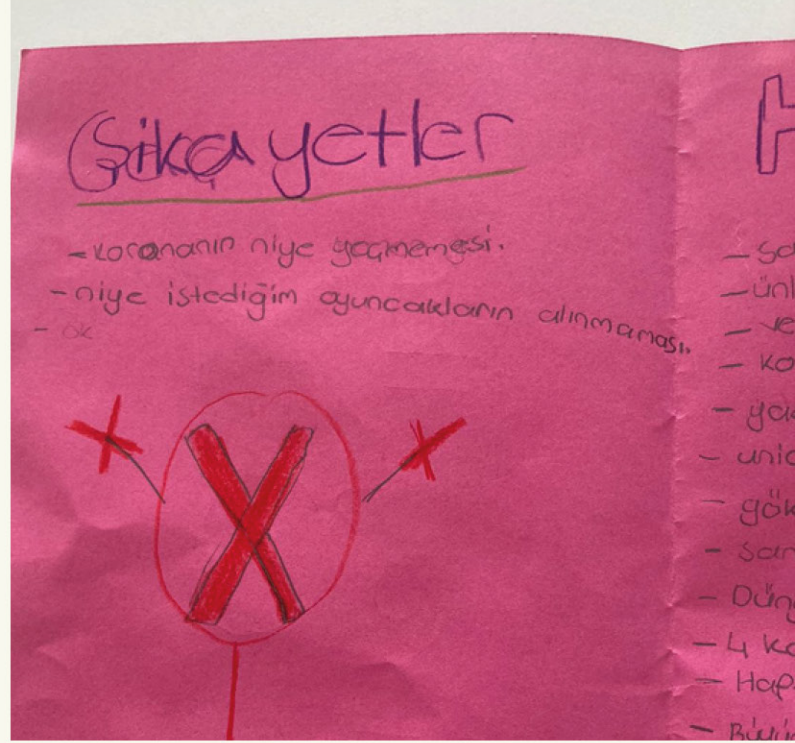 Şikayetler
- korananın niye geçmemesi.
- niye istediğim oyuncakların alınmaması.
- ok
H
- sa
- ünl
- ve
- ko
- yak
- unic
- gök
- sar
- Dün
- 4 ka
- Hap
- Büyü